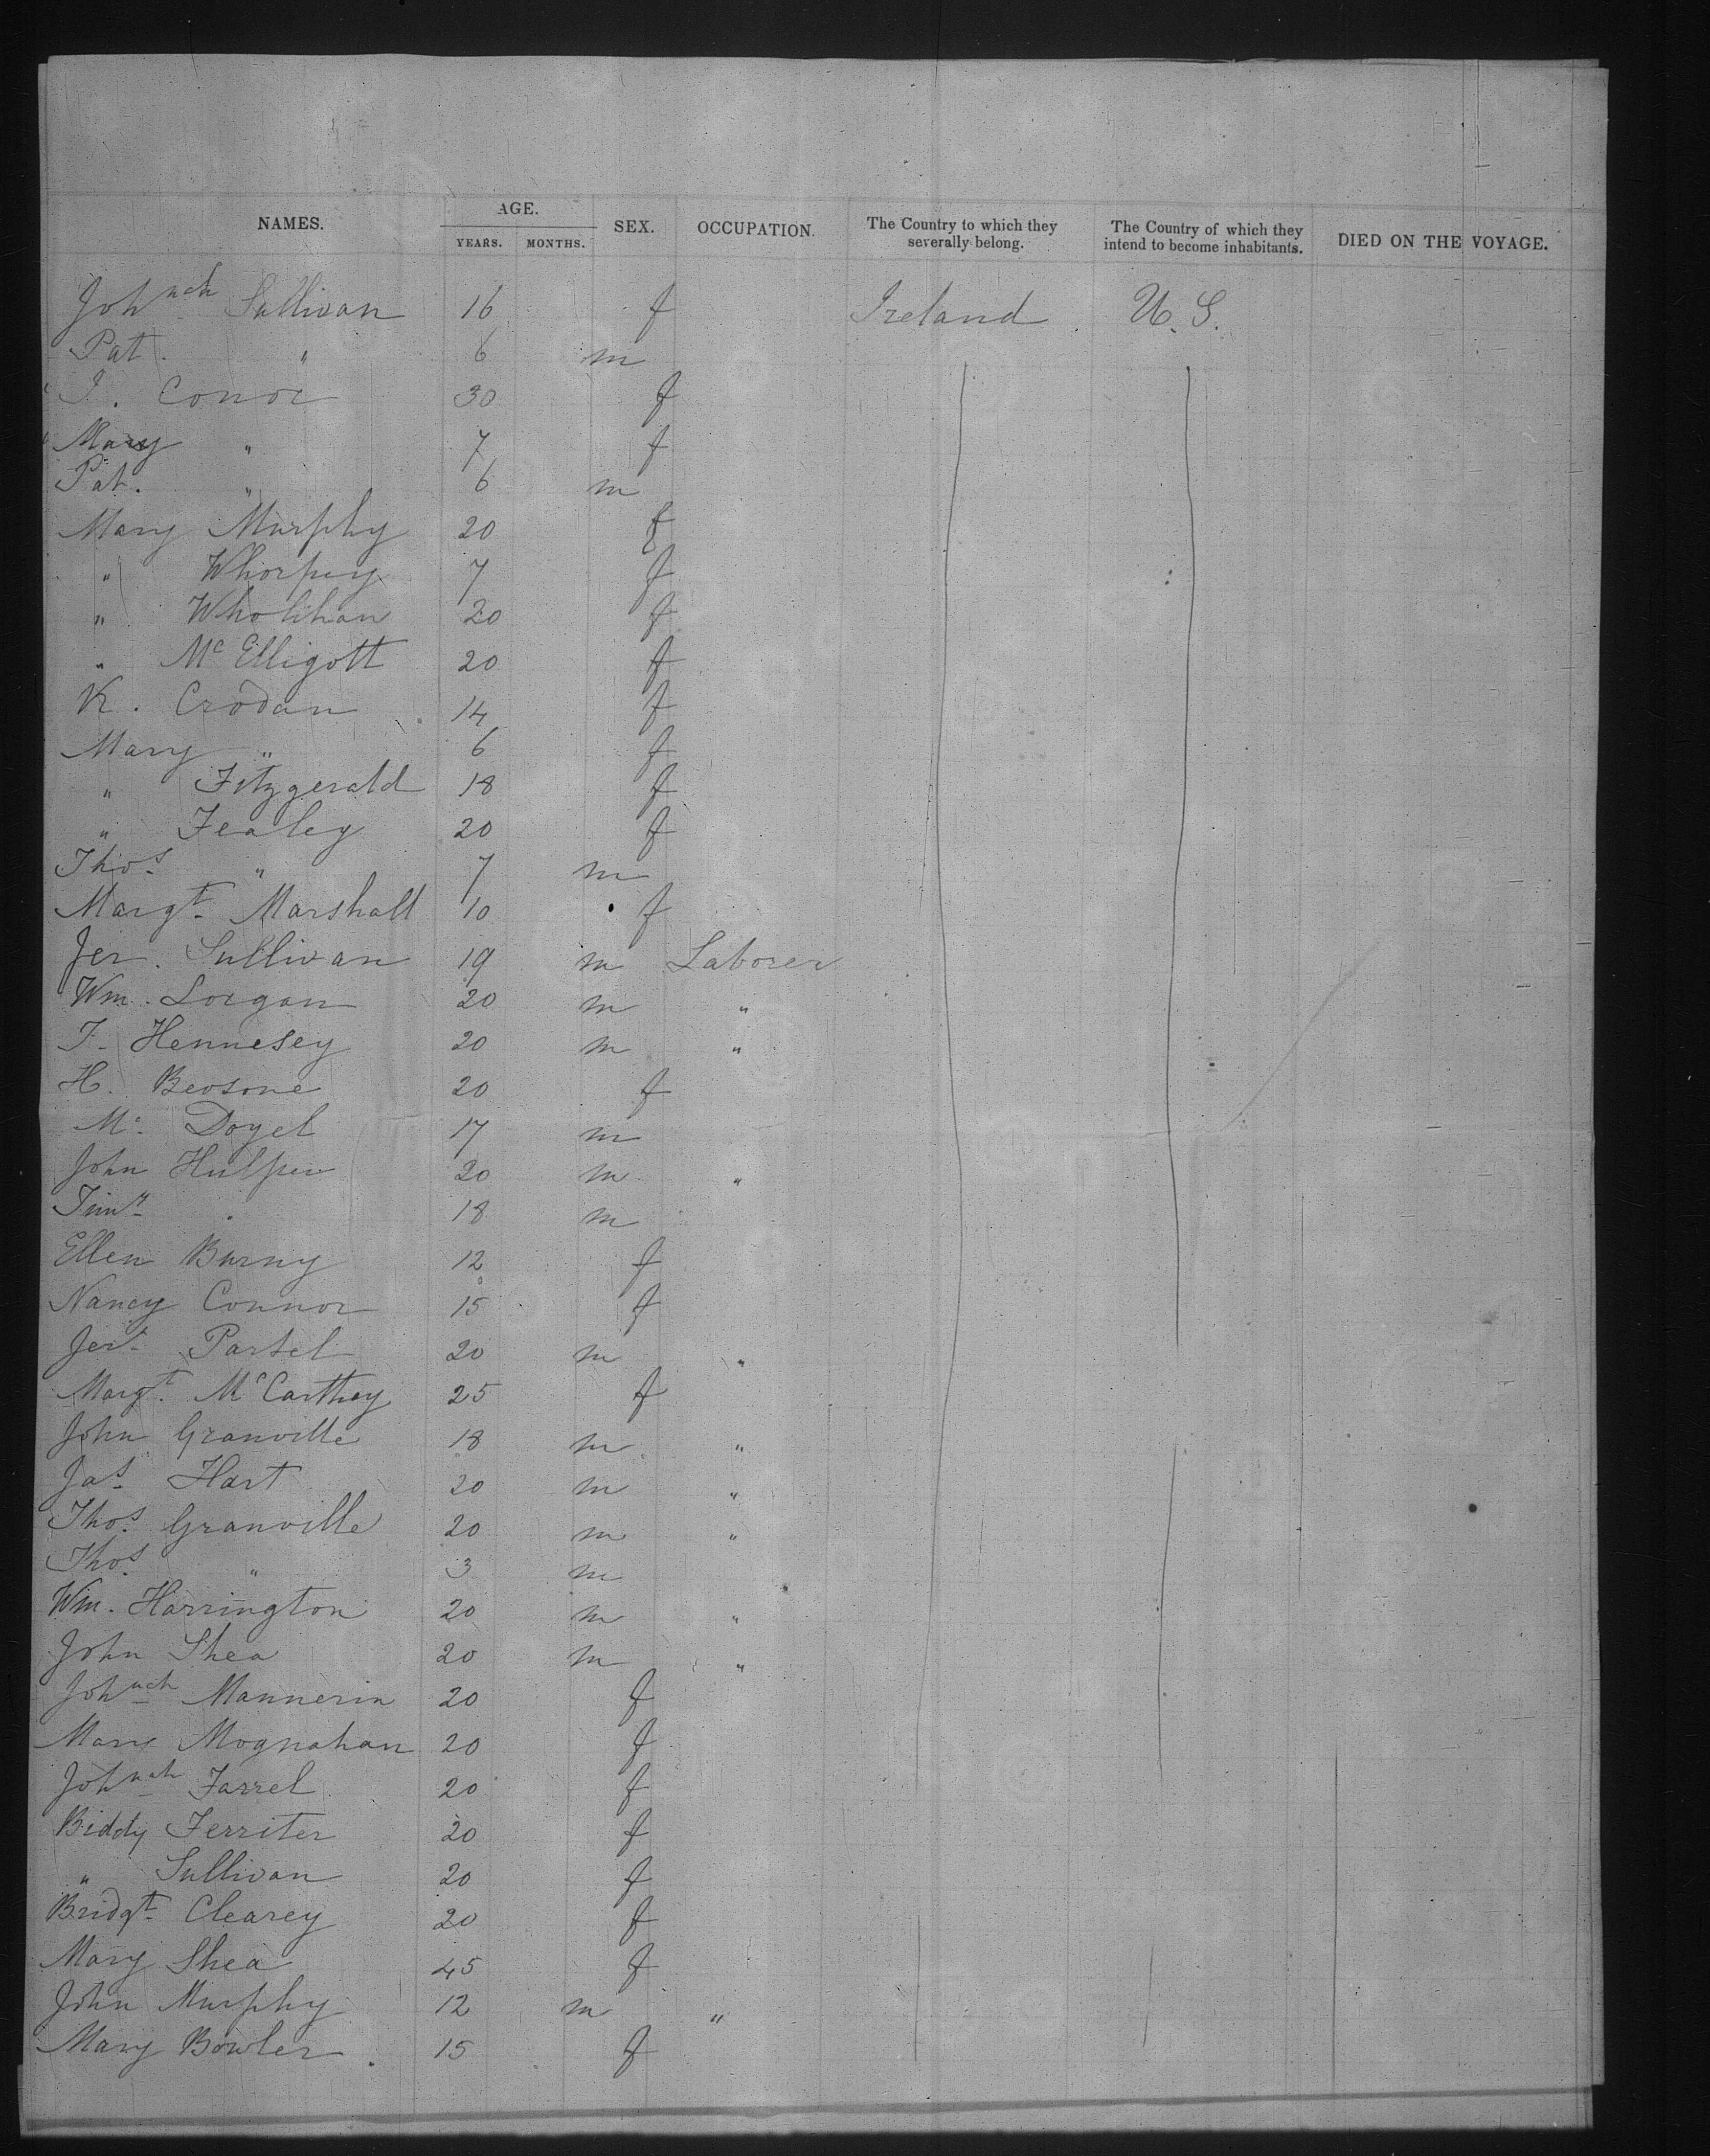 NAMES. AGE. SEX. OCCUPATION. The Country to which they severally belong. The Country of which they intend to become inhabitants. DIED ON THE VOYAGE.
YEARS. MONTHS.
Johnah Sullivan 16 f Ireland U.S.
Pat. " 6 m
J. Conor 30 f
Mary " 7 f
Pat. " 6 m
Mary Murphy 20 f
" Whorpey 7 f
" Wholihan 20 f
" McElligott 20 f
K. Crodan 14 f
Mary " 6 f
" Fitzgerald 18 f
" Fealey 20 f
Thos. " 7 m
Margt. Marshall 10 f
Jer. Sullivan 19 m Laborer
Wm. Lorgan 20 m "
T. Hennesey 20 m "
H. 20 f
Mc. Doyel 17 m
John Hulpin 20 m "
Timy. 18 m
Ellen Burny 12 f
Nancy Connor 15 f
Jer. Partel 20 m "
Margt. McCarthey 25 f
John Granville 18 m "
Jas. Hart 20 m "
Thos. Granville 20 m "
Thos. " 3 m
Wm. Harrington 20 m "
John Shea 20 m "
Johnah Mannerin 20 f
Mary Mognahan 20 f
Johnah Farrel 20 f
Biddy Ferriter 20 f
" Sullivan 20 f
Bridgt. Clearey 20 f
Mary Shea 45 f
John Murphy 12 m "
Mary Bowler 15 f